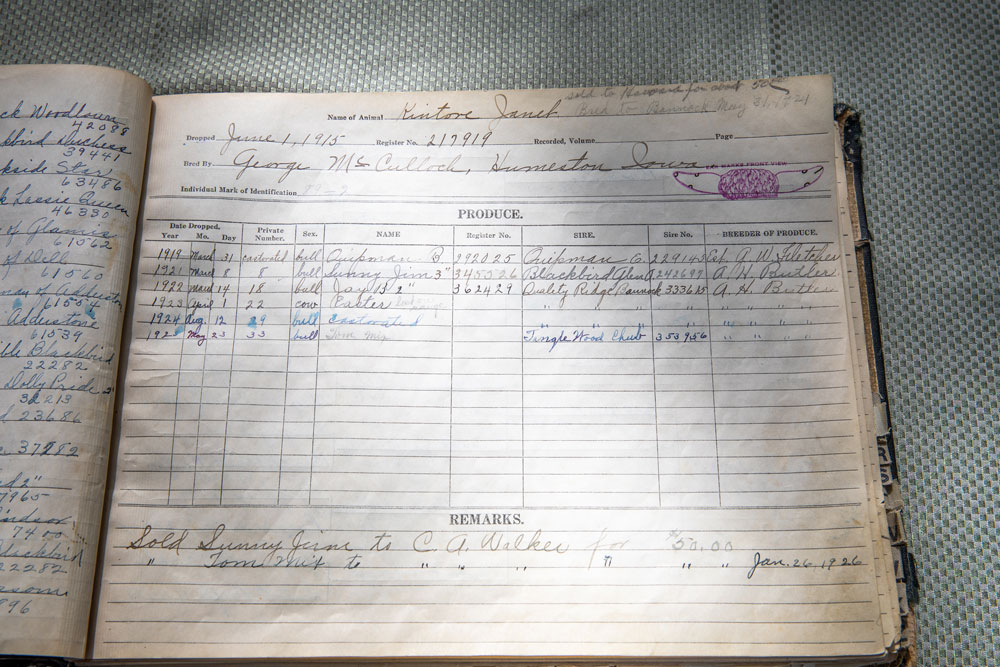 ck Woodlawn
42088
kbird Duchess
39441
kside Star
63486
k Lassie Queen
46330
of Glamis
61562
of Dell
61560
61551
Addiestone
61539
ble Blackbird
22282
Dolly Pride 2"
32213
d 23686
37282
d 2"
7965
7400
Blackbird
22282
ssom
896
sold to Howard for about 50
Bred to Bannock May 31, 1921
Name of Animal Kintore Janet
Dropped June 1, 1915 Register No. 217919 Recorded, Volume Page
Bred By George McCulloch, Humeston Iowa
EAR MARKS FRONT VIEW
Individual Mark of Identification
PRODUCE.
Date Dropped. Year Mo. Day Private Number. Sex. NAME Register No. SIRE. Sire No. BREEDER OF PRODUCE.
1919 March 31 castrated bull Quipman B 292025 Quipman C. 229143 A. W. Fletcher
1921 March 8 8 bull Sunny Jim 3" 345026 Blackbird 242697 A. H. Butler
1922 March 14 18 bull Jay B 2" 362429 Quality Ridge Bannock 333615 A. H. Butler
1923 April 1 22 cow " " " " " "
1924 Aug. 12 29 bull castrated " " " " " "
192 May 23 33 bull Tom Mix Tingle Wood Chub 353956 " " " "
REMARKS.
Sold Sunny Jim to C. A. Walker for $50.00
" Tom Mix to " " " " " " Jan. 26, 1926